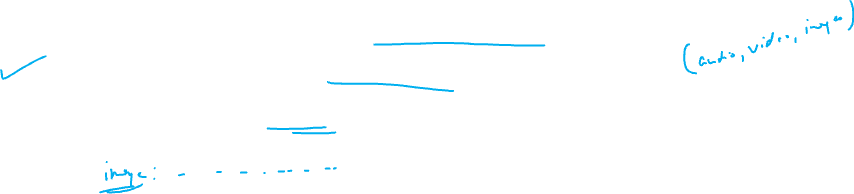 (audio, video, image)
image: - - - - - - - -